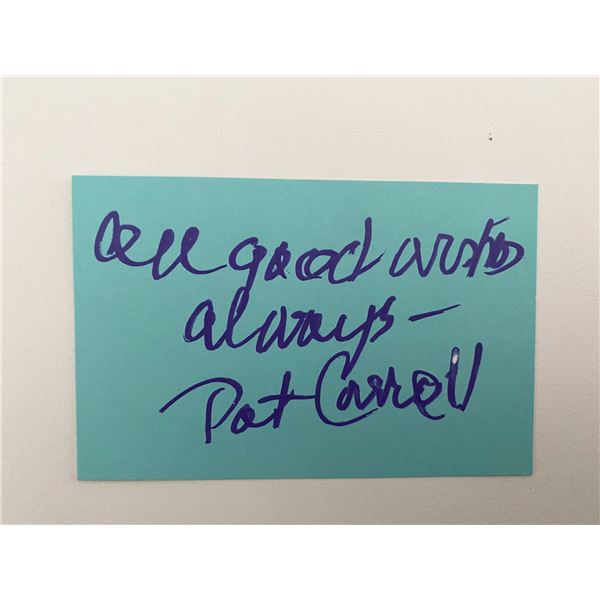 all good wishes
always -
Pat Carroll